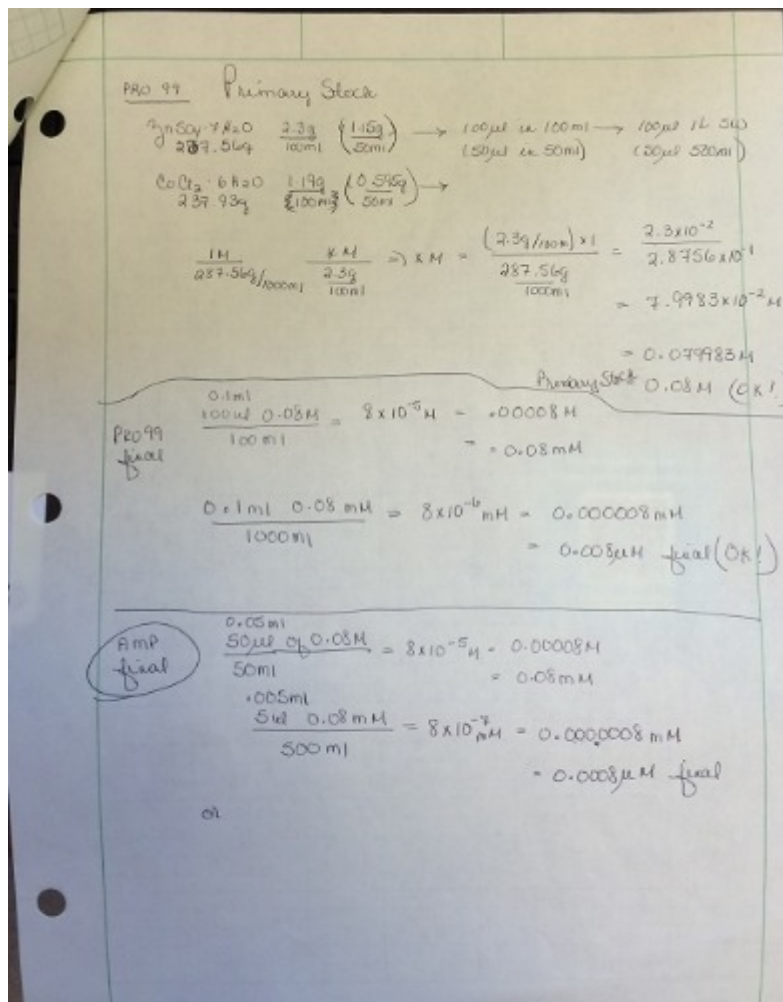 PRO 99 Primary Stock
ZnSO4·7H2O 2.3g/100ml (1.15g/50ml) → 100µl in 100ml → 100µl 1L SW
287.56g (50µl in 50ml) (50µl 500ml)
CoCl2·6H2O 1.19g/100ml (0.595g/50ml) →
237.93g
1M / 287.56g/1000ml x M / 2.3g/100ml => x M = (2.3g/100ml) x 1 / 287.56g/1000ml = 2.3x10⁻² / 2.8756x10⁻¹
= 7.9983x10⁻² M
= 0.079983M
Primary Stock 0.08M (OK!)
PRO99 final
0.1ml
100µl 0.08M / 100ml = 8x10⁻⁵ M = .00008M
= 0.08mM
0.1ml 0.08mM / 1000ml = 8x10⁻⁶ mM = 0.000008mM
= 0.008µM final (OK!)
AMP final
0.05ml
50µl of 0.08M / 50ml = 8x10⁻⁵ M = 0.00008M
= 0.08mM
.005ml
5µl 0.08mM / 500ml = 8x10⁻⁷ mM = 0.0000008mM
= 0.0008µM final
or